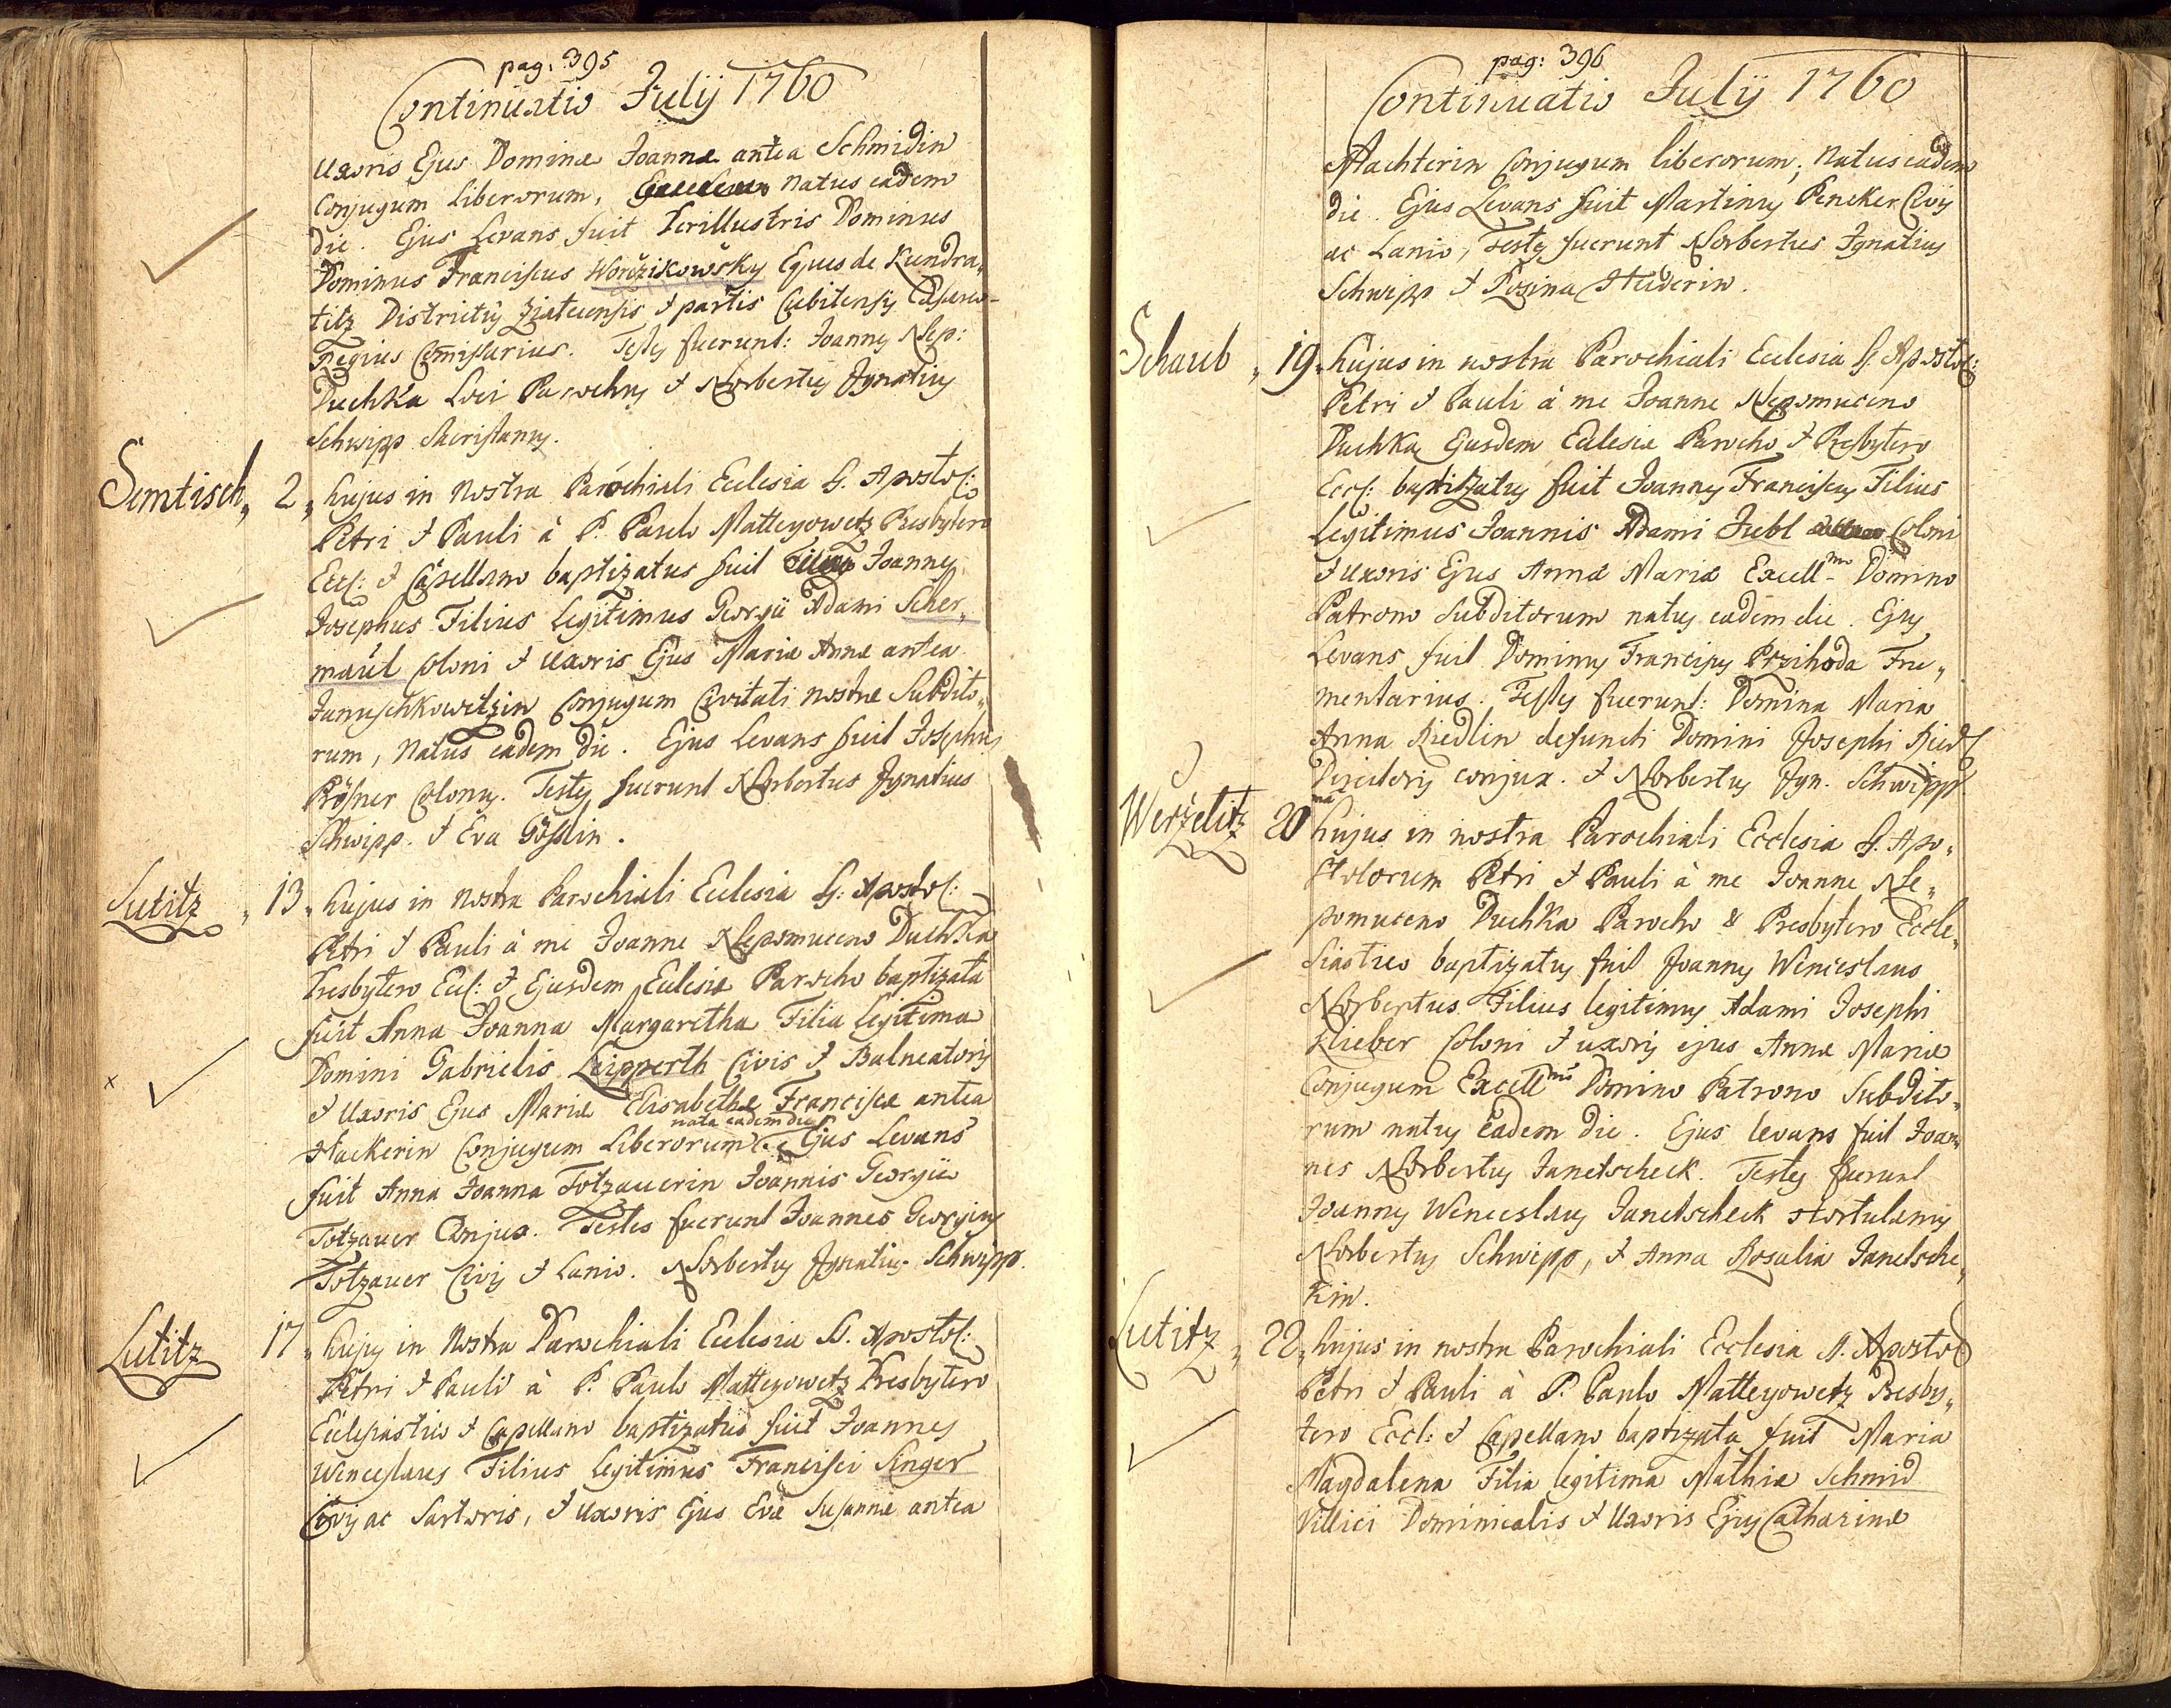 pag: 395
Continuatio Julij 1760
Uxoris Ejus Dominæ Joannæ antea Schmidin
Conjugum Liberorum, natus eadem
die. Ejus Levans fuit Perillustris Dominus
Dominus Franciscus Woržikowsky Eques de Kundra„
titz Districtus Ziatecensis & partis Cubitensis Cæsareo-
Regius Comissarius. Testes fuerunt: Joannes Nep:
Duchka Loci Parochus & Norbertus Ignatius
Schwipp Sacristanus.
Semtisch„ 2„ hujus in Nostra Parochiali Ecclesia S. Apostol:
Petri & Pauli à P. Paulo Matteyowetz Presbytero
Eccl: & Capellano baptizatus fuit Joannes
Josephus Filius Legitimus Georgii Adami Scher„
maul Coloni & Uxoris Ejus Mariæ Annæ antea
Januschkowetzin Conjugum Civitati nostræ Subdito„
rum, Natus eadem die. Ejus Levans fuit Josephus
Rösner Colonus. Testes fuerunt Norbertus Ignatius
Schwipp. & Eva Gösslin.
Lutitz „ 13„ hujus in Nostra Parochiali Ecclesia S: Apostol:
Petri & Pauli à me Joanne Nepomuceno Duchka
Presbytero Eccl: & Ejusdem Eclesiæ Parocho baptizata
fuit Anna Joanna Margaretha Filia Legitima
Domini Gabrielis Leipperth Civis & Balneatoris
x & Uxoris Ejus Mariæ Elisabethæ Franciscæ antea
nata eadem die
Hackerin Conjugum Liberorum. Ejus Levans
fuit Anna Joanna Totzauerin Joannis Georgii
Totzauer Conjux. Testes fuerunt Joannes Georgius
Totzauer Civis & Lanio. Norbertus Ignatius Schwipp.
Lutitz 17„ hujus in Nostra Parochiali Ecclesia S. Apostol:
Petri & Pauli à P. Paulo Matteyowetz Presbytero
Ecclesiastico & Capellano baptizatus fuit Joannes
Wenceslaus Filius Legitimus Francisci Singer
Civis ac Sartoris, & Uxoris Ejus Evæ Susannæ antea
pag: 396
Continuatio Julij 1760
Machterin Conjugum liberorum, Natus eadem
die. Ejus Levans fuit Martinus Pencker Civis
ac Lanio, Testes fuerunt Norbertus Ignatius
Schwipp & Rosina Huderin.
Schaub „ 19„ hujus in nostra Parochiali Ecclesia S. Apostol:
Petri & Pauli à me Joanne Nepomuceno
Duchka Ejusdem Eclesiæ Parocho & Presbytero
Eccl: baptizatus fuit Joannes Franciscus Filius
Legitimus Joannis Adami Jubl Coloni
& Uxoris Ejus Annæ Mariæ Excell-mo Domino
Patrono Subditorum natus eadem die. Ejus
Levans fuit Dominus Franciscus Przihoda Fru„
mentarius. Testes fuerunt: Domina Maria
Anna Riedlin defuncti Domini Josephi Riedl
Directoris conjux. & Norbertus Ign. Schwipp
Werželitz 20ma hujus in nostra Parochiali Ecclesia S. Apo„
stolorum Petri & Pauli à me Joanne Ne„
pomuceno Duchka Parocho & Presbytero Eccle„
siastico baptizatus fuit Joannes Wenceslaus
Norbertus Filius legitimus Adami Josephi
Klieber Coloni & uxoris ejus Annæ Mariæ
Conjugum Excellmo Domino Patrono Subdito„
rum natus Eadem die. Ejus levans fuit Joan„
nes Norbertus Janetscheck. Testes fuerunt
Joannes Wenceslaus Janetscheck Hortulanus
Norbertus Schwipp, & Anna Rosalia Janetsche„
kin.
Lutitz „ 22„ hujus in nostra Parochiali Ecclesia S. Apostol
Petri & Pauli à P. Paulo Matteyowetz Presby„
tero Eccl: & Capellano baptizata fuit Maria
Magdalena Filia legitima Mathiæ Schmid
Villici Dominicalis & Uxoris Ejus Catharinæ